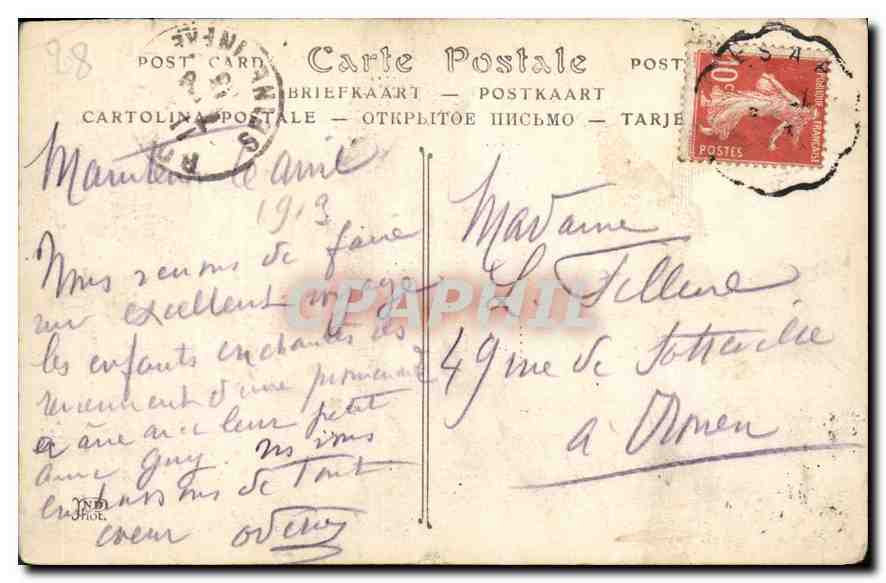 28
Carte Postale
POST CARD
POST
BRIEFKAART — POSTKAART
CARTOLINA POSTALE — ОТКРЫТОЕ ПИСЬМО — TARJE
10c
POSTES
FRANÇAISE
ROUEN
le avril
1913
Nous venons de faire
un excellent voyage
les enfants enchantés ils
reviennent d'une promenade
à âne avec leur petit
ami Guy. ns vous
embrassons de tout
coeur
Madame
L.
49 rue de Sotteville
à Rouen
ND
Phot.
CPAPHIL